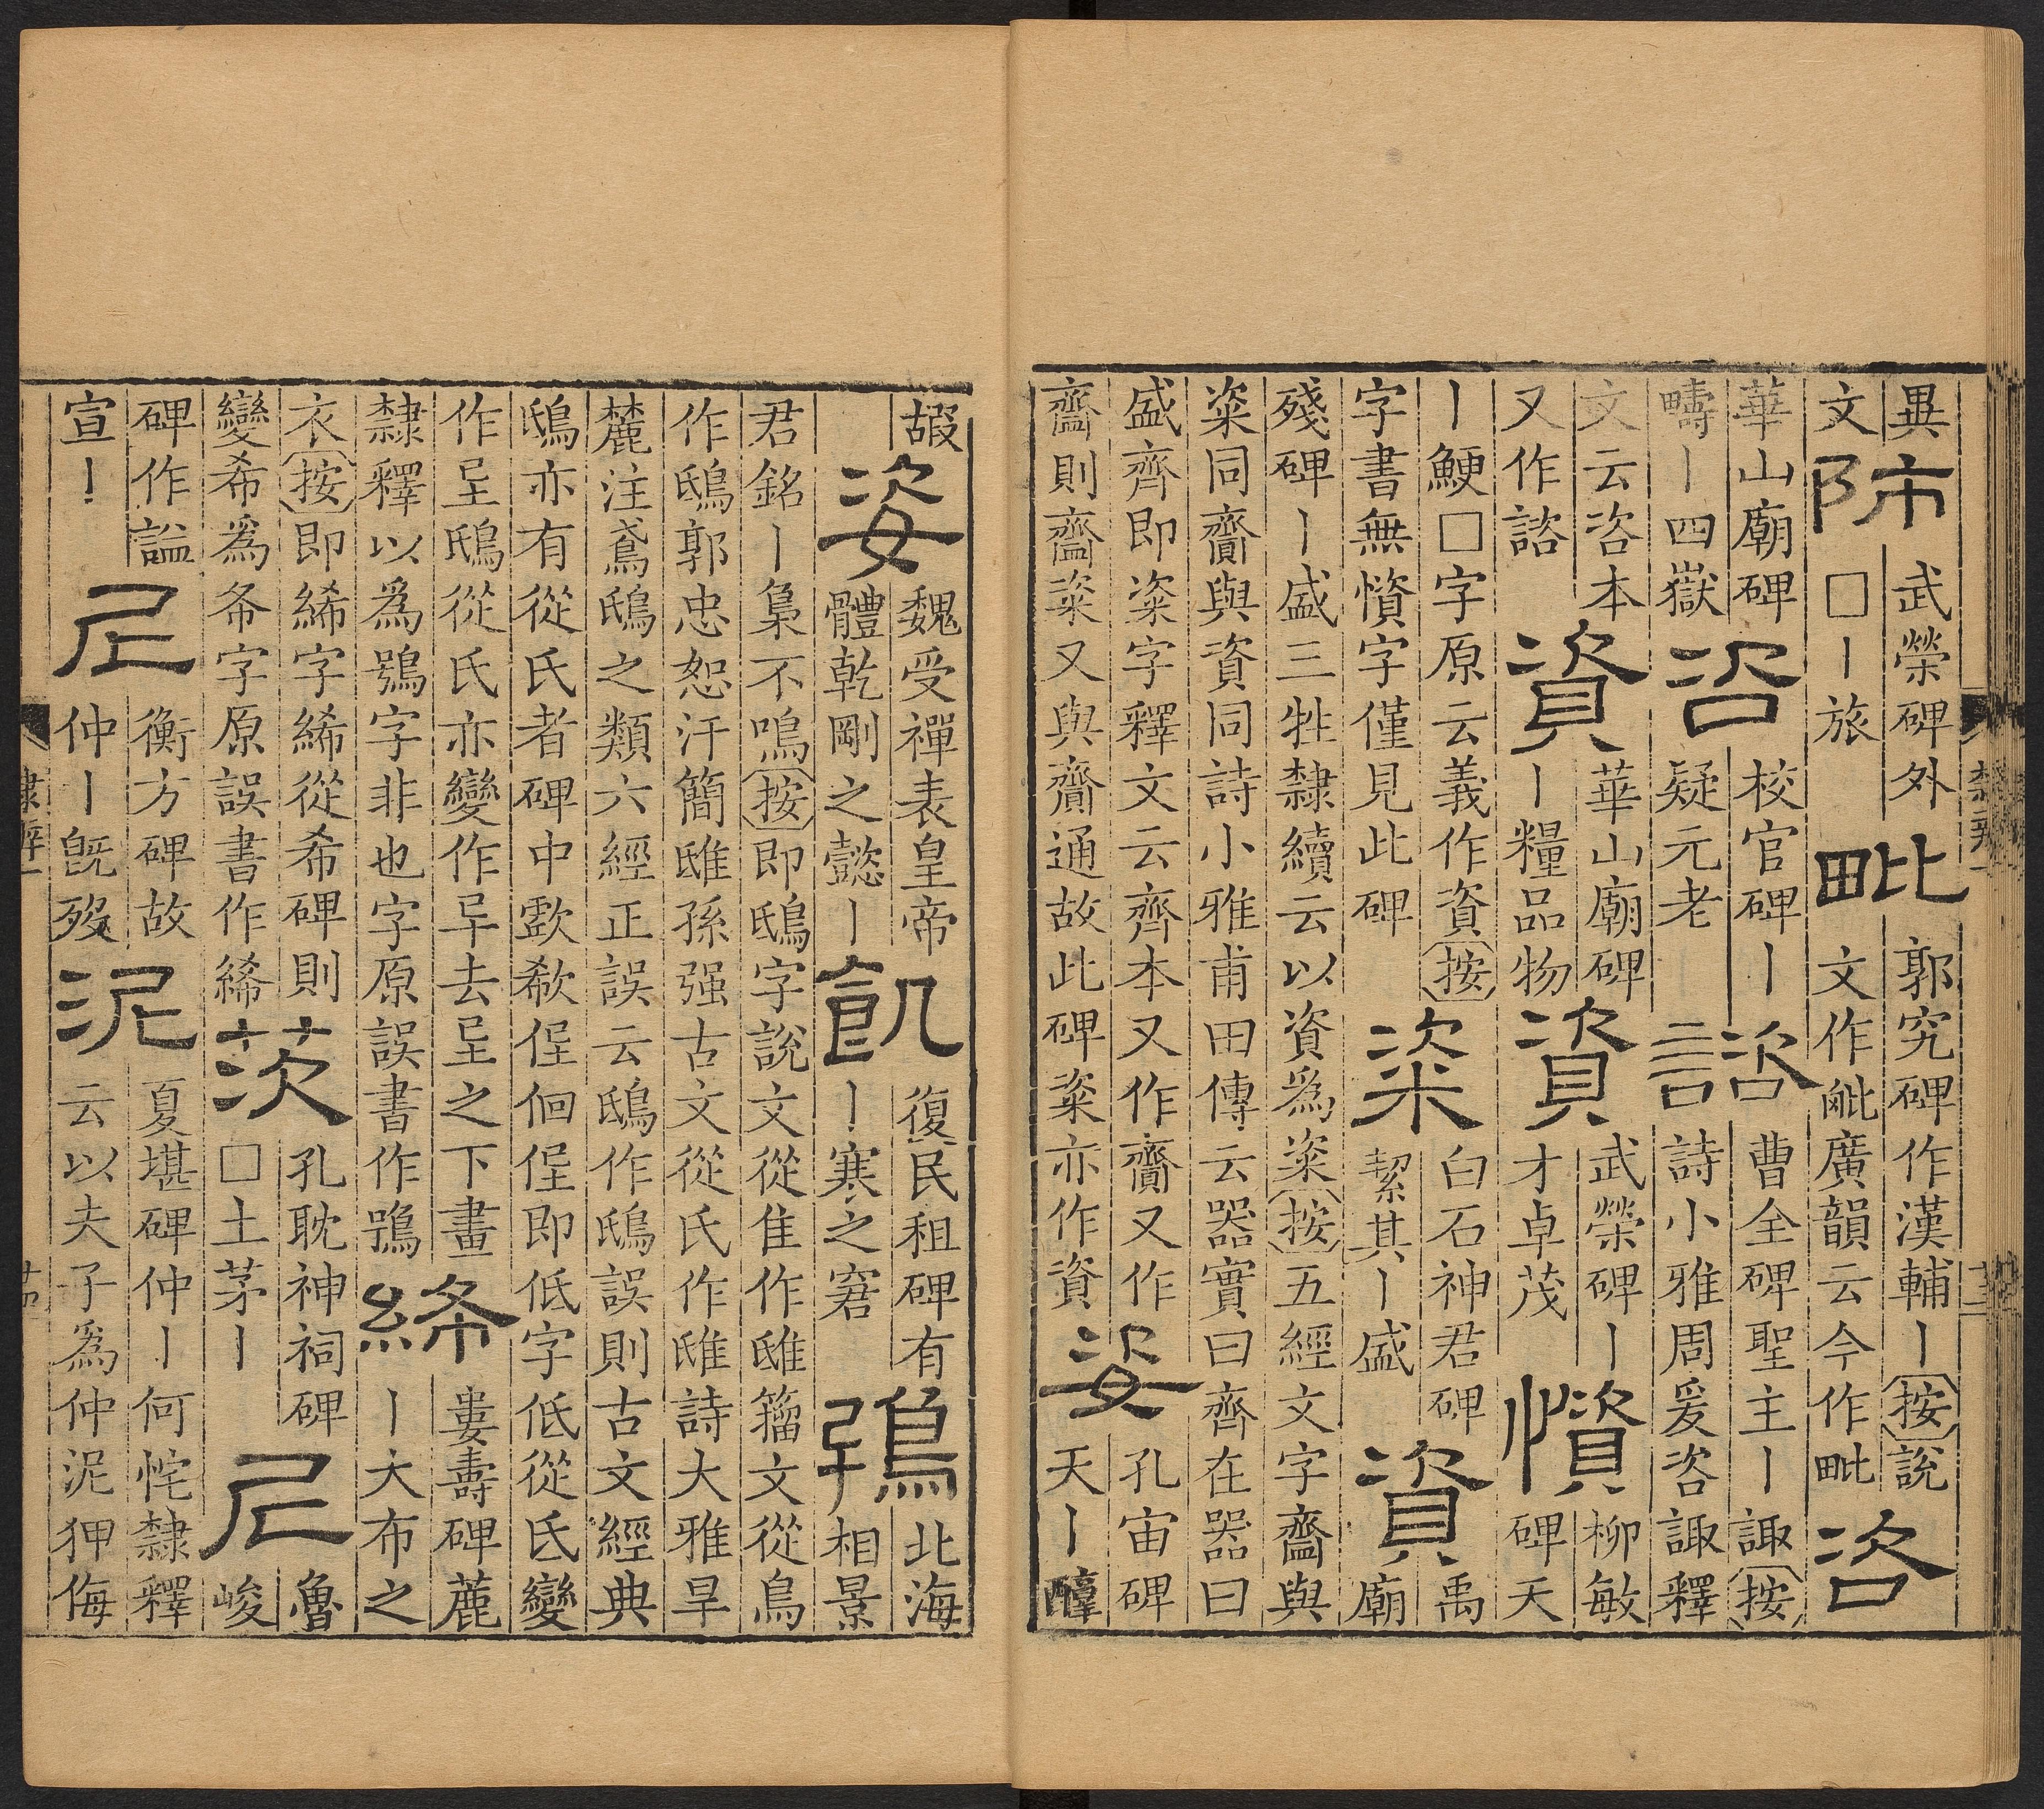 異文師武榮碑外□丨旅毗郭究碑作漢輔丨按說文作毗廣韻云今作毗咨
華山廟碑疇丨四嶽咨校官碑丨疑元老諮曹全碑聖主丨諏按詩小雅周爰咨諏釋
文云咨本又作諮資華山廟碑丨糧品物資武榮碑丨才卓茂懫柳敏碑天
丨鯁□字原云義作資按字書無懫字僅見此碑粢白石神君碑絜其丨盛資禹廟
殘碑丨盛三牲隸續云以資爲粢按五經文字齍與粢同齎與資同詩小雅甫田傳云器實曰齊在器曰
盛齊即粢字釋文云齊本又作齎又作齍則齍粢又與齎通故此碑粢亦作資姿孔宙碑天丨醇
嘏姿魏受禪表皇帝體乾剛之懿丨飢復民租碑有丨寒之窘鴟北海相景
君銘丨梟不鳴按即鴟字說文從隹作䧴籀文從鳥作鴟郭忠恕汗簡䧴孫强古文從氏作䧴詩大雅旱
麓注鳶鴟之類六經正誤云鴟作鴟誤則古文經典鴟亦有從氏者碑中歔欷佪即低字低從氐變
作𡈼鴟從氏亦變作去𡈼之下畫隸釋以爲鶚字非也字原誤書作鴞絺婁壽碑麄丨大布之
衣按即絺字絺從希碑則變希爲字原誤書作絺茨孔耽神祠碑□土茅丨尼魯峻
碑作謚宣丨尼衡方碑故仲丨旣歿泥夏堪碑仲丨何恠隸釋云以夫子爲仲泥狎侮
隸辨一
十四